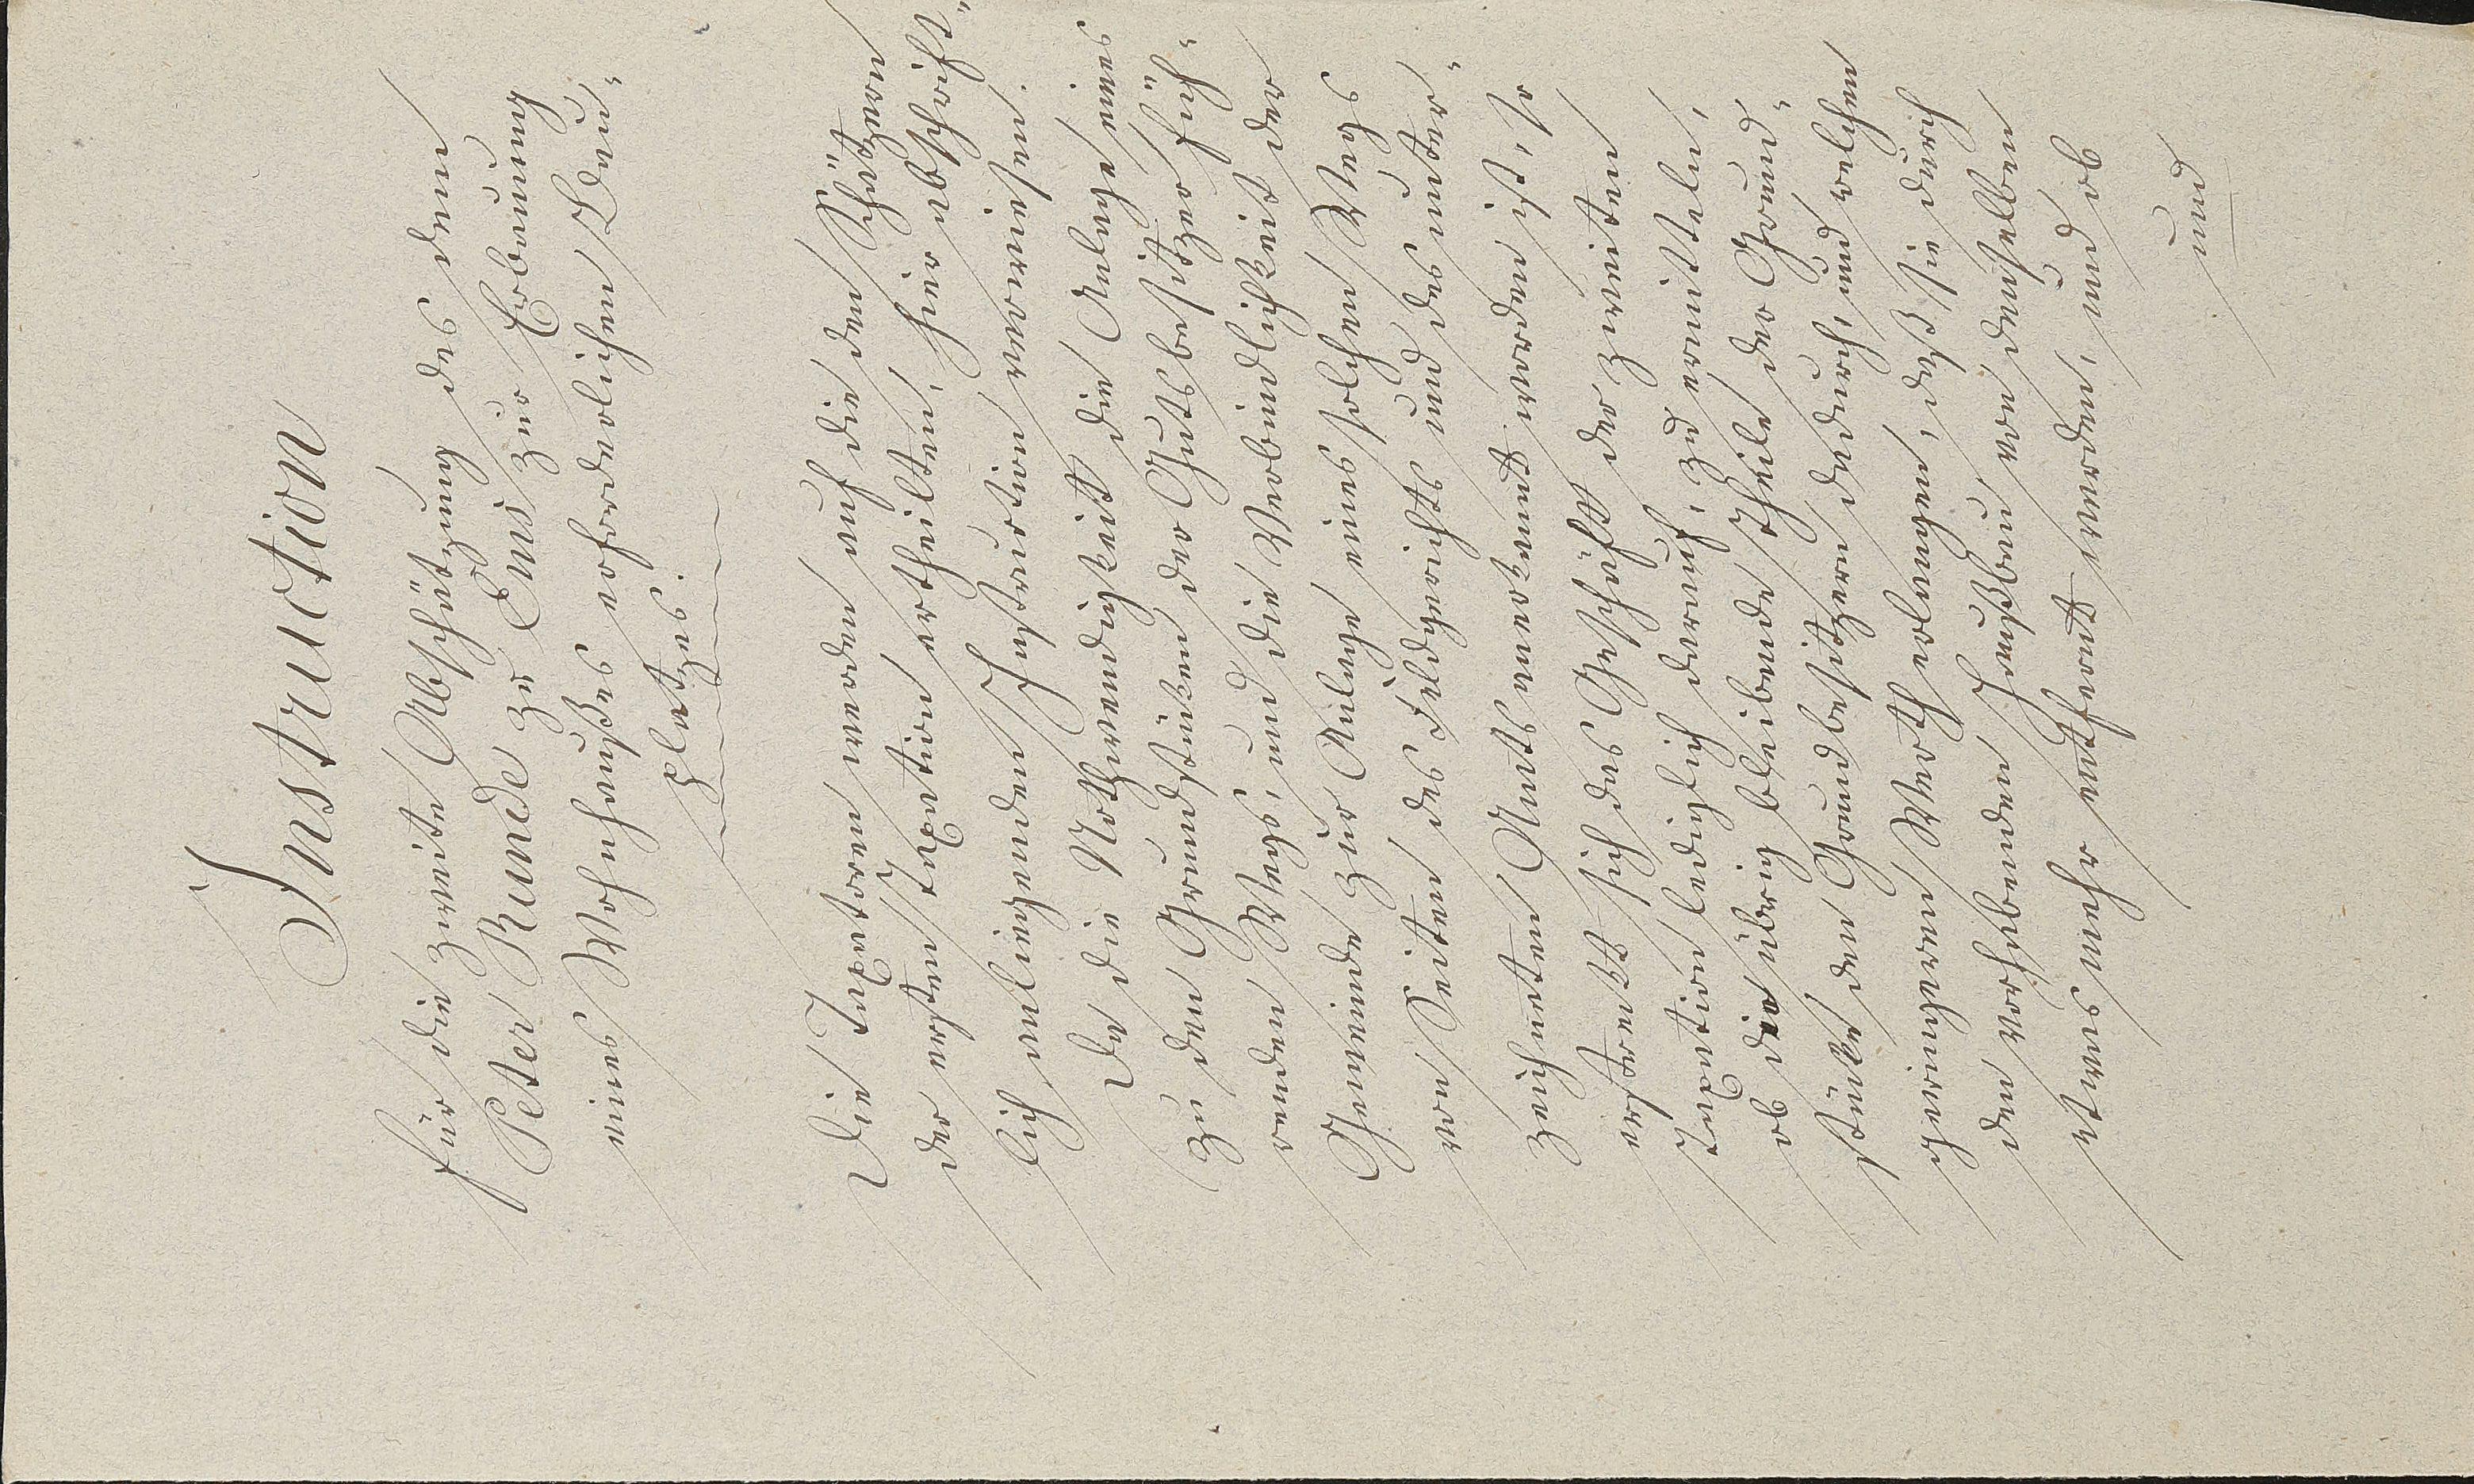 Instruction
für die zweite Abschätzung des dem
Peter Runde zu Ems zur Erbauung
eines Wohnhaußes erforderlichen Bau-
platzes.
Die Taxatoren werden auf die den Schätzern
der ersten Taxation ertheilten, hier abschrift-
lich anliegenden Instruction verwiesen.
Da die Nothwendigkeit die Anlage eines
zu den Grundstücken der Gutsbesitzer füh-
renden Wegs, und die Verbindlichkeit der
Gemeinde zur Anlage eines solchen Wegs
von Seiten des Feldgerichts und des unter-
zeichneten Amts anerkannt worden ist, so
erstreckt sich das Geschäft der zweiten
Taxation lediglich darauf, zu ermitteln,
ob die übrig bleibende Theile der Grund-
stücke den Grundbesitzern dadurch, und welchen
geringeren Werth erlangen, daß sie durch
den vorhabenden Hausbau von denselben
etwas mehr entfernt werden, und ob
und